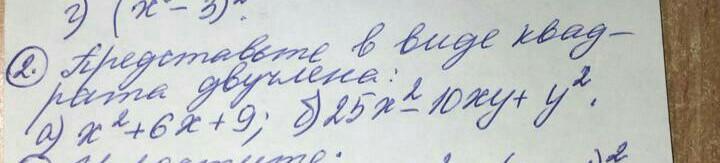 г) (x² - 3)².
2. Представьте в виде квад-
рата двучлена:
а) x² + 6x + 9; б) 25x² - 10xy + y².